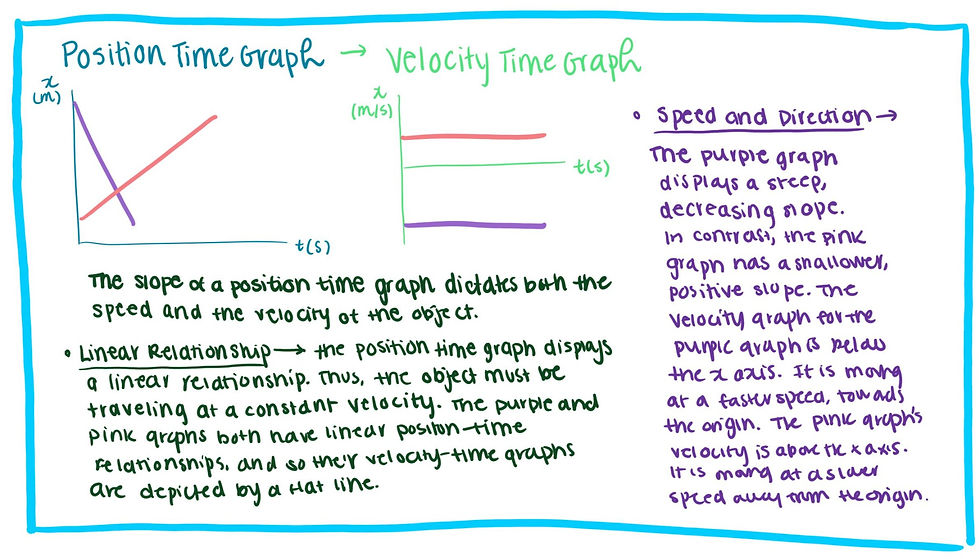 Position Time Graph → Velocity Time Graph
x
(m)
t(s)
x
(m/s)
t(s)
The slope of a position time graph dictates both the
speed and the velocity of the object.
• Linear Relationship → the position time graph displays
a linear relationship. Thus, the object must be
traveling at a constant velocity. The purple and
pink graphs both have linear positon-time
relationships, and so their velocity-time graphs
are depicted by a flat line.
• Speed and Direction →
The purple graph
displays a steep,
decreasing slope.
In contrast, the pink
graph has a shallower,
positive slope. The
velocity graph for the
purple graph is below
the x axis. It is moving
at a faster speed, towads
the origin. The pink graph's
velocity is above the x axis.
It is moving at a slower
speed away from the origin.